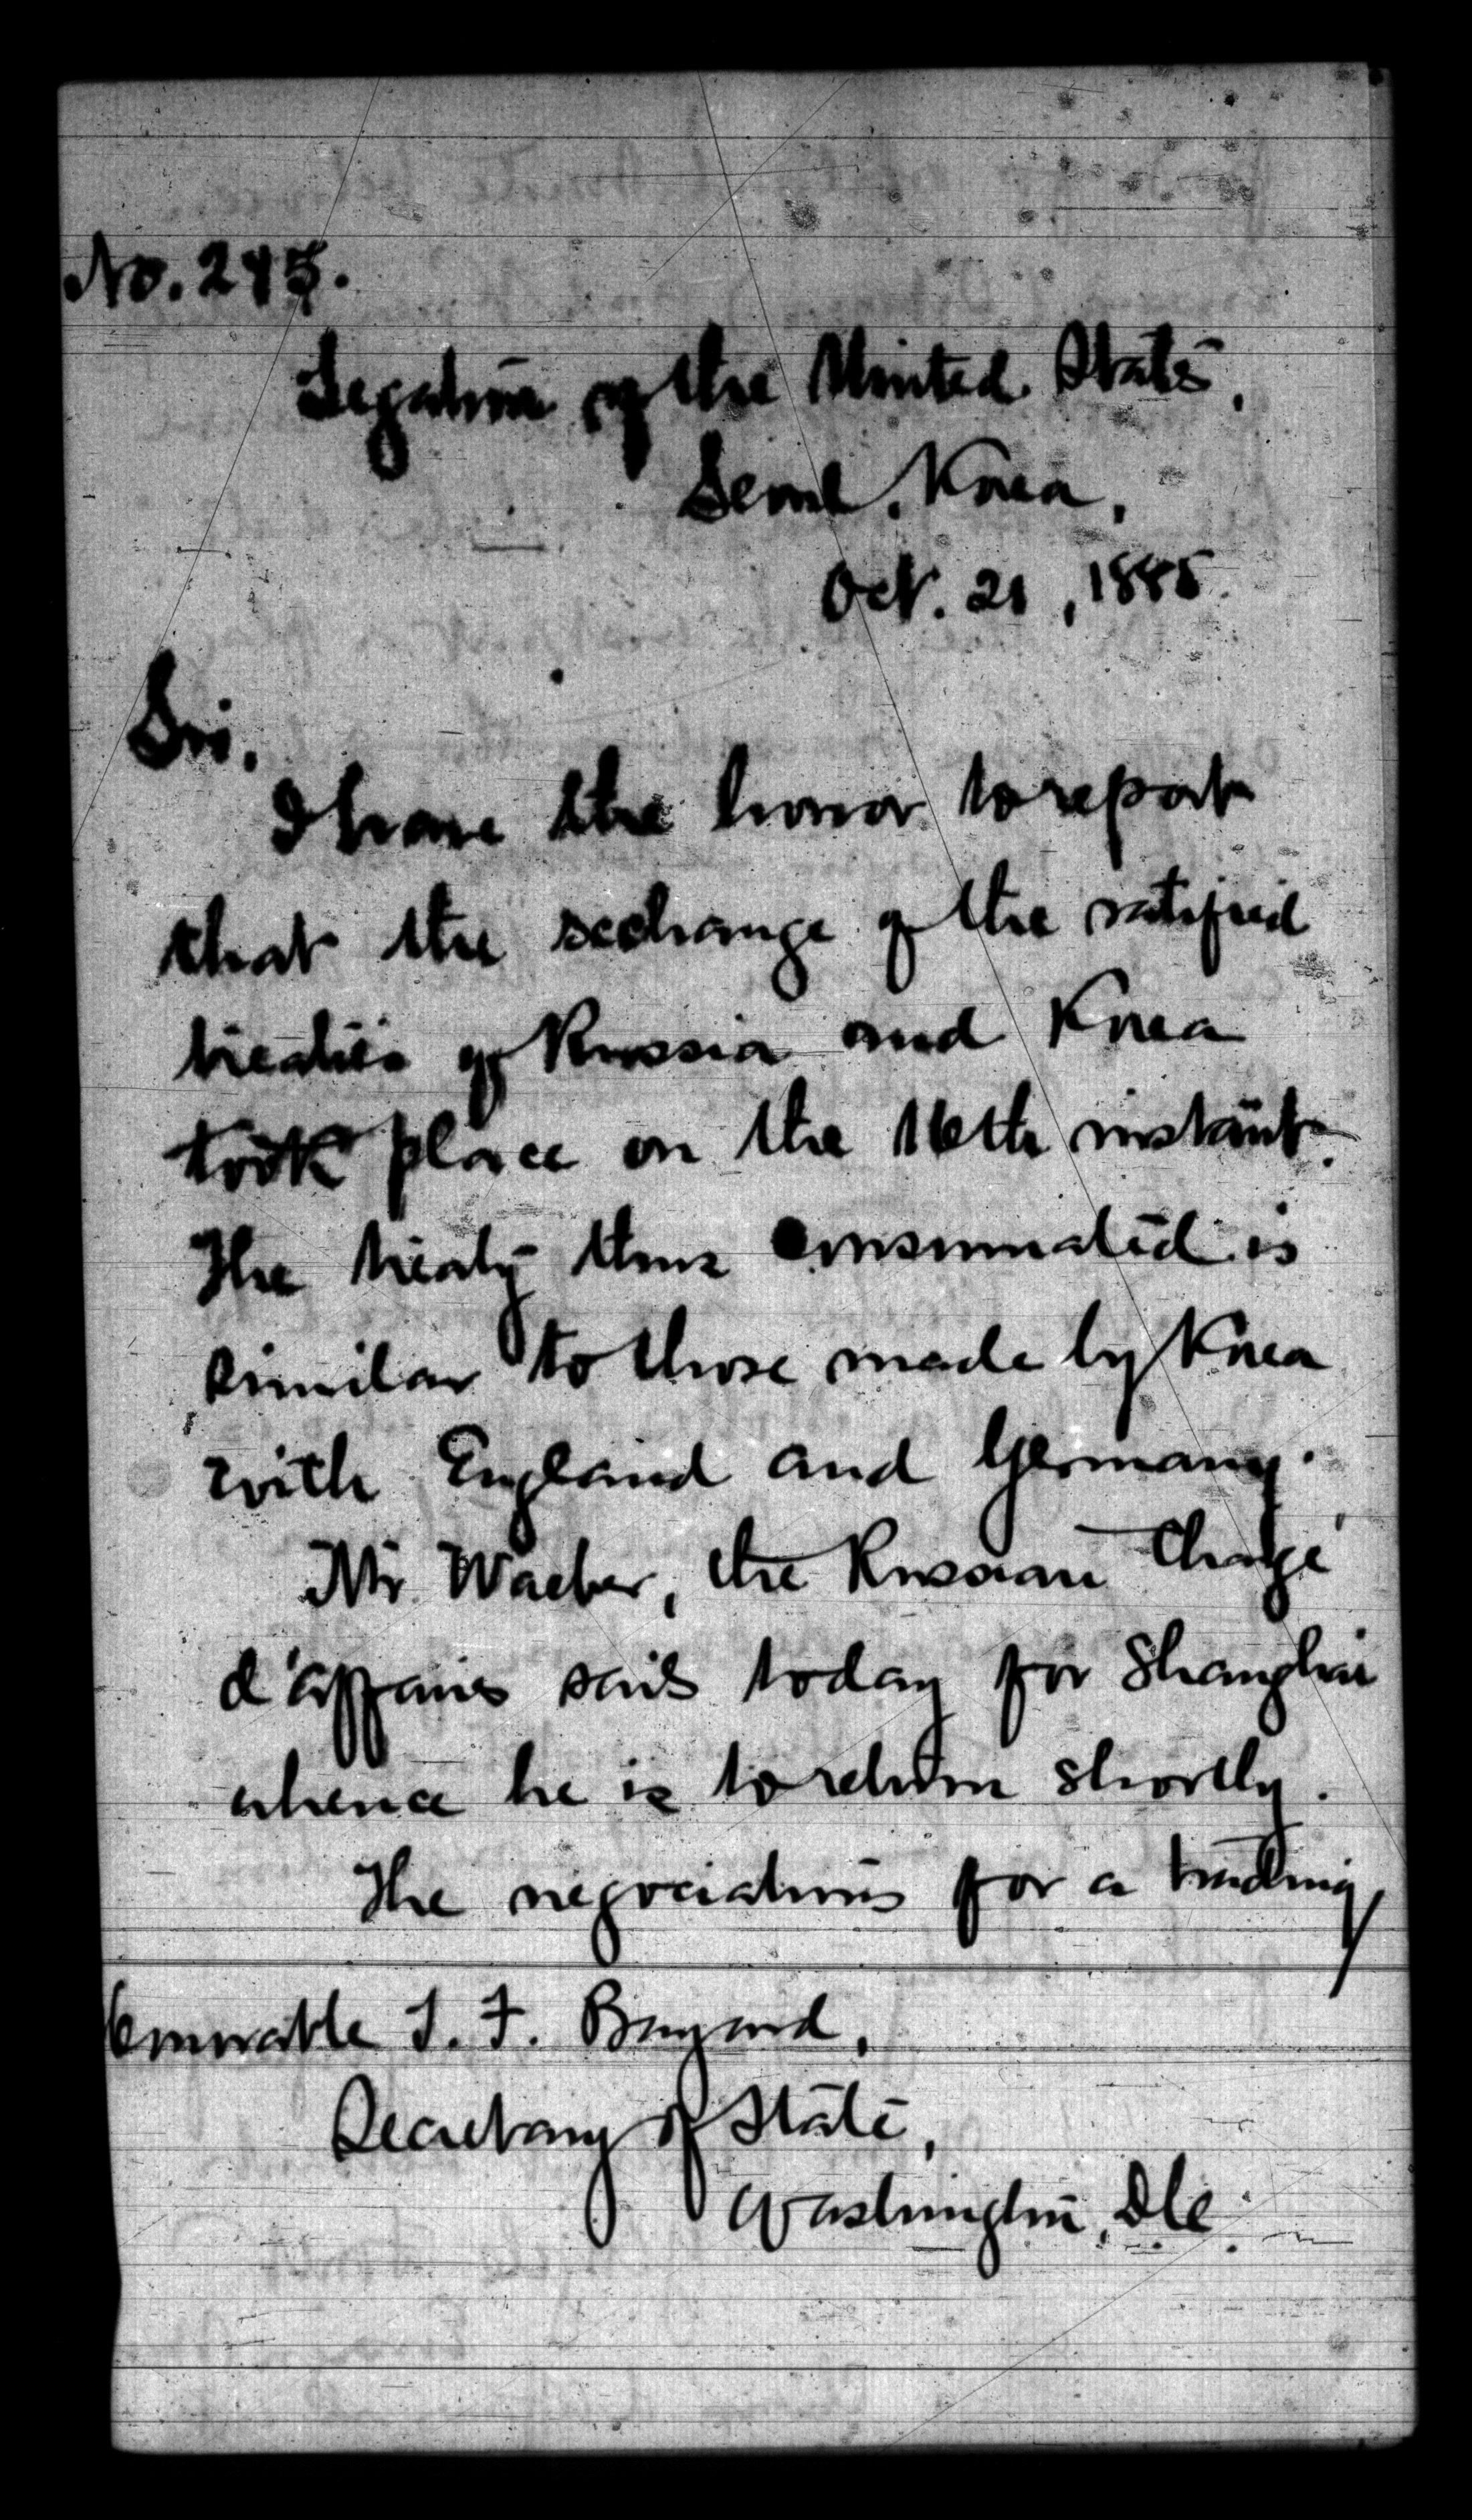 No. 245.
Legation of the United States,
Seoul, Korea,
Oct. 21, 1885.
Sir.
I have the honor to report
that the exchange of the ratified
treaties of Russia and Korea
took place on the 16th instant.
The treaty thus consummated is
similar to those made by Korea
with England and Germany.
Mr Waeber, the Russian Chargé
d'affaires sails today for Shanghai
whence he is to return shortly.
The negociations for a trading
Honorable T. F. Bayard,
Secretary of State,
Washington, D.C.